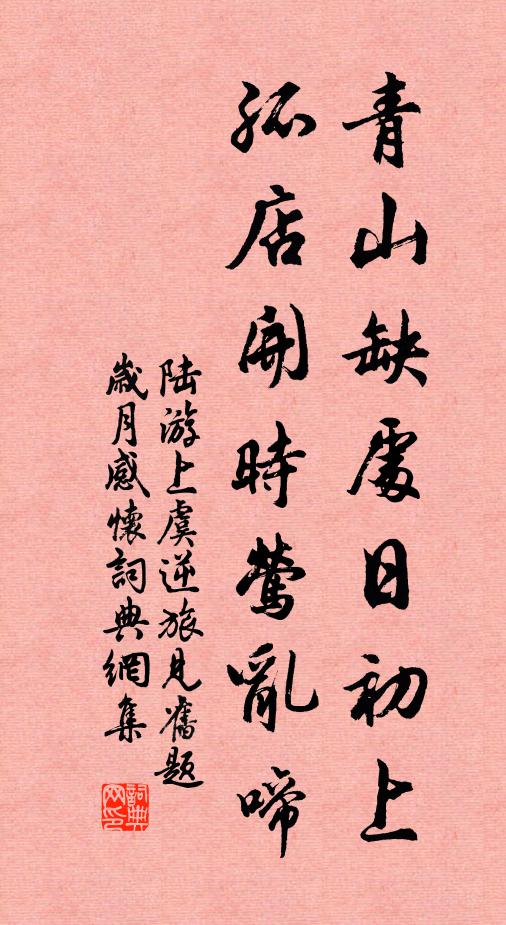 青山缺處日初上
孤店開時鶯亂啼
陆游上虞逆旅見舊題
歲月感懷詞典網集
詞典
网印